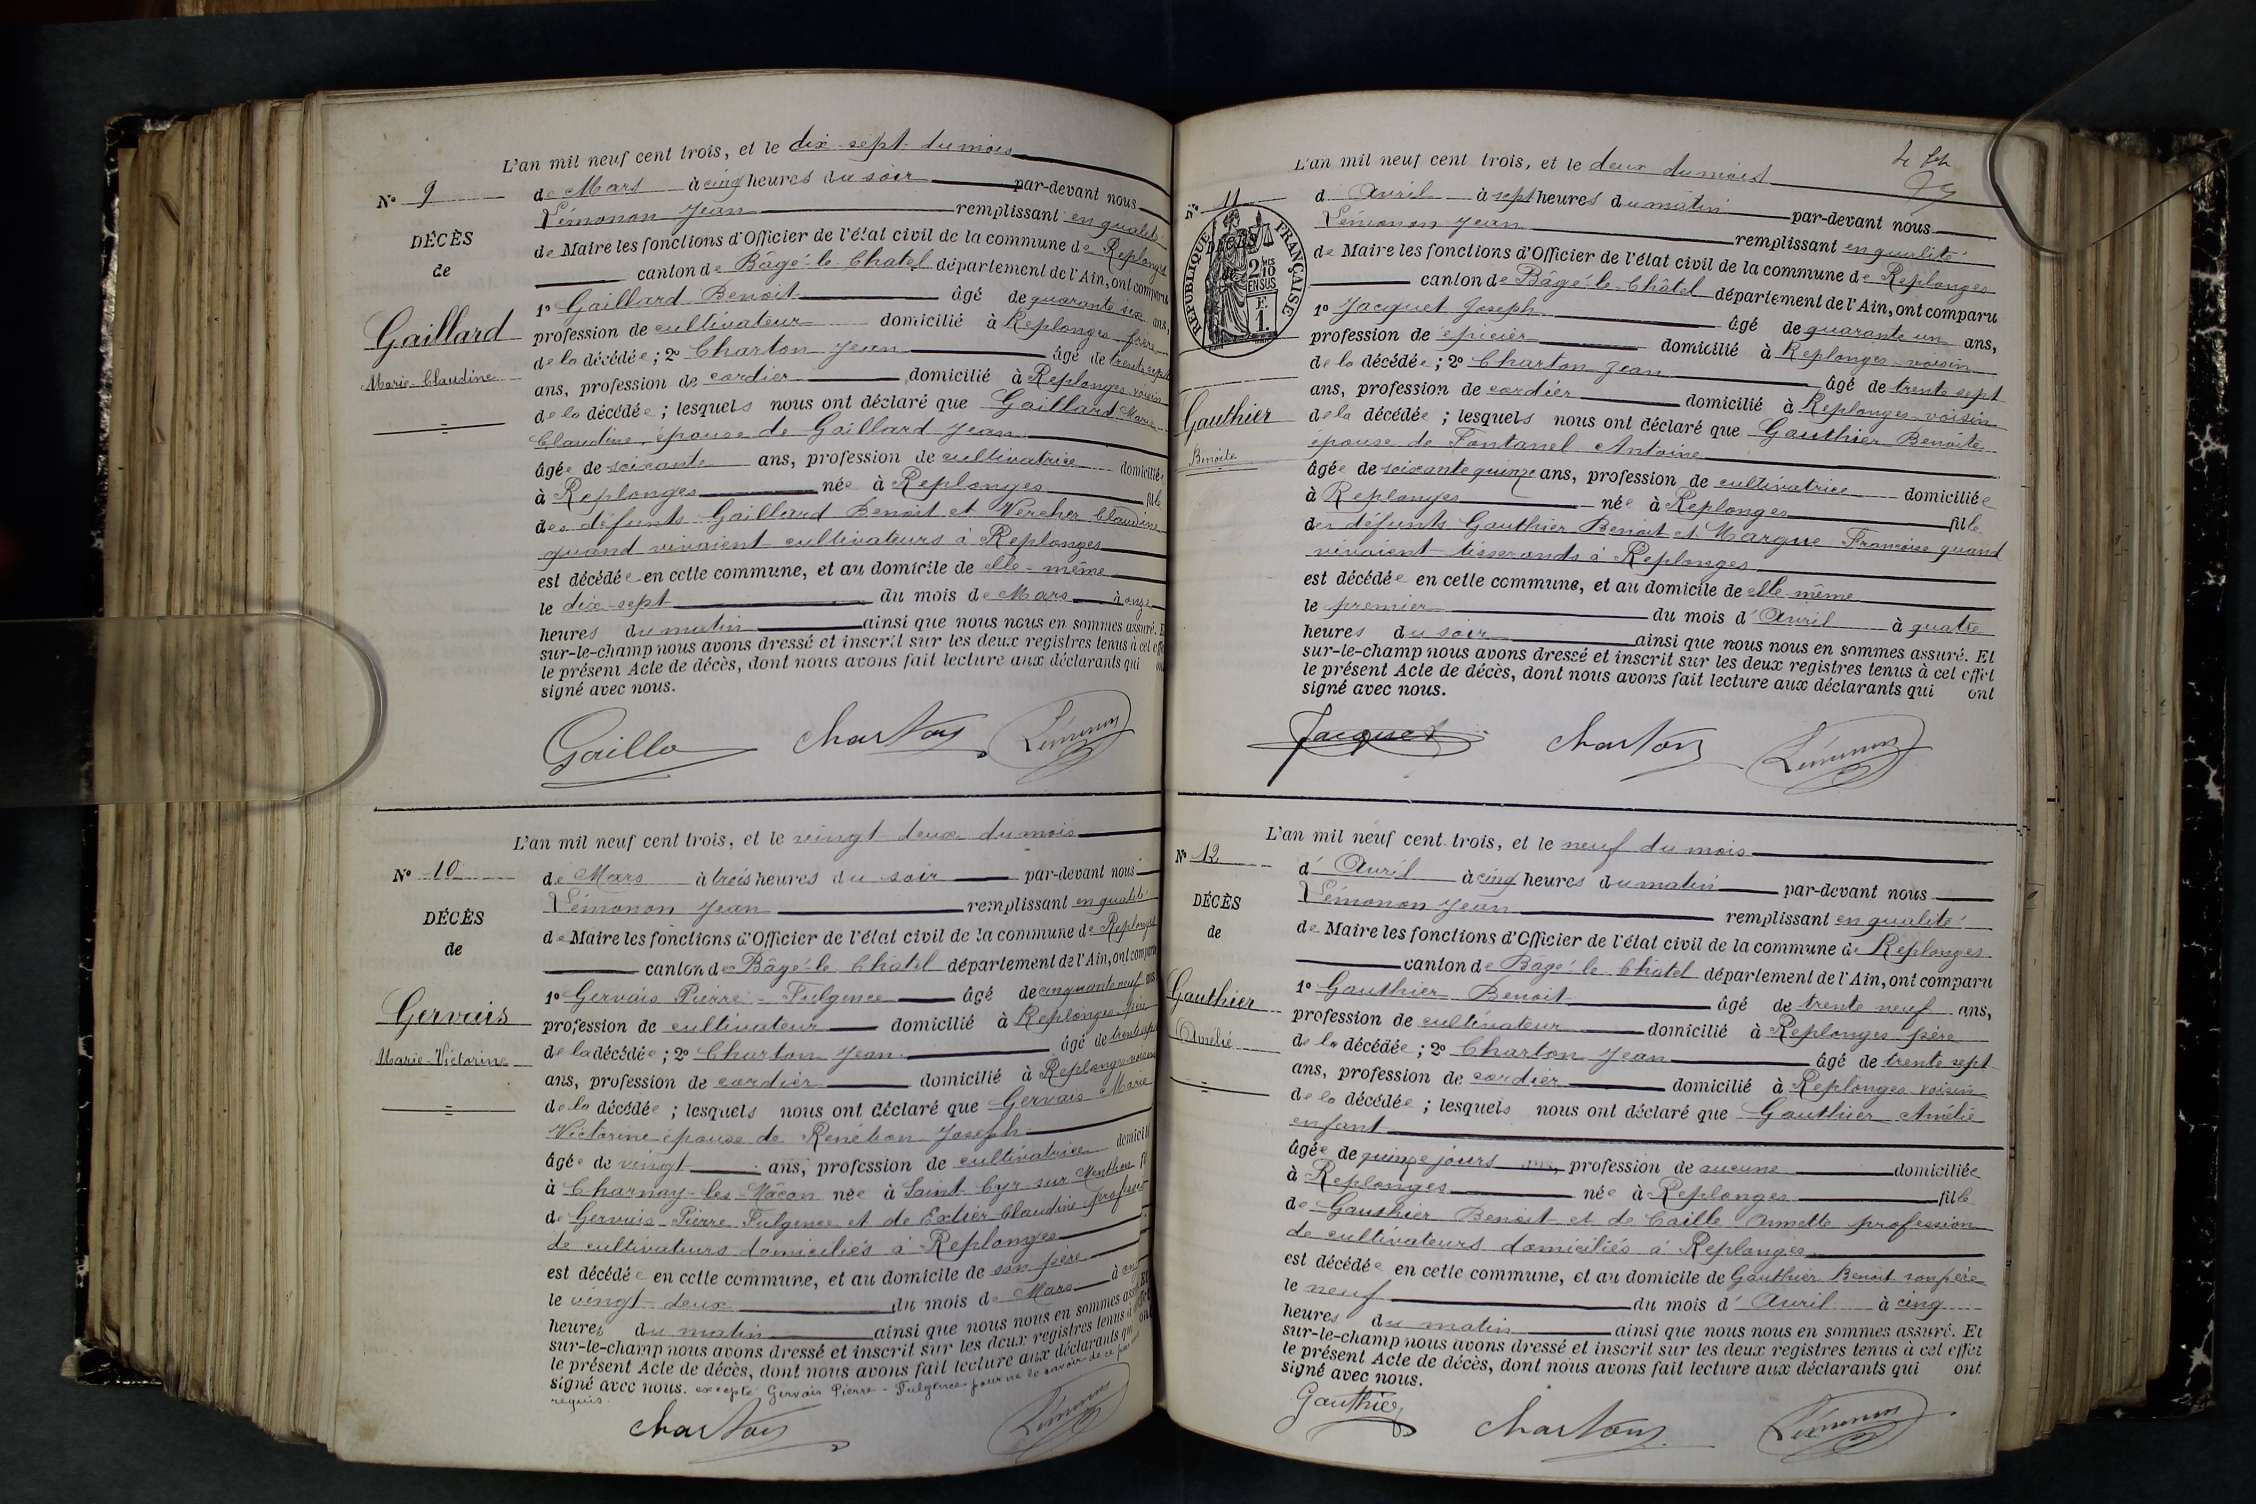 L'an mil neuf cent trois, et le dix-sept du mois
N° 9
de Mars à cinq heures du soir par-devant nous
Lémonon Jean remplissant en qualité
DÉCÈS
de Maire les fonctions d'Officier de l'état civil de la commune de Replonges
de
canton de Bâgé-le-Chatel département de l'Ain, ont comparu
1° Gaillard Benoit âgé de quarante six ans,
Gaillard
profession de cultivateur domicilié à Replonges frère
de la décédée; 2° Charton Jean âgé de trente sept
Marie-Claudine
ans, profession de cordier domicilié à Replonges voisin
de la décédée; lesquels nous ont déclaré que Gaillard Marie
Claudine, épouse de Gaillard Jean
âgée de soixante ans, profession de cultivatrice domiciliée
à Replonges née à Replonges fille
des défunts Gaillard Benoit et Vercher Claudine
quand vivaient cultivateurs à Replonges
est décédée en cette commune, et au domicile de elle-même
le dix-sept du mois de Mars à onze
heures du matin ainsi que nous nous en sommes assuré. E
sur-le-champ nous avons dressé et inscrit sur les deux registres tenus à cet effe
le présent Acte de décès, dont nous avons fait lecture aux déclarants qui on
signé avec nous.
Gailla Charton Lémonon
L'an mil neuf cent trois, et le vingt-deux du mois
N° 10
de Mars à trois heures du soir par-devant nous
Lémonon Jean remplissant en qualité
DÉCÈS
de Maire les fonctions d'Officier de l'état civil de la commune de Replonges
de
canton de Bâgé-le-Chatel département de l'Ain, ont comparu
1° Gervais Pierre-Fulgence âgé de cinquante neuf ans
Gervais
profession de cultivateur domicilié à Replonges père
de la décédée; 2° Charton Jean âgé de trente sept
Marie-Victorine
ans, profession de cordier domicilié à Replonges voisin
de la décédée; lesquels nous ont déclaré que Gervais Marie
Victorine épouse de Joseph
âgée de vingt ans, profession de cultivatrice domicili
à Charnay-les-Mâcon née à Saint-Cyr sur Menthon fi
de Gervais Pierre Fulgence et de Claudine
de cultivateurs domiciliés à Replonges
est décédée en cette commune, et au domicile de son père
le vingt-deux du mois de Mars à
heures du matin ainsi que nous nous en sommes ass
sur-le-champ nous avons dressé et inscrit sur les deux registres tenus à
le présent Acte de décès, dont nous avons fait lecture aux déclarants qui ont
signé avec nous. excepté Gervais Pierre-Fulgence pour ne le savoir de ce
requis.
Charton Lémonon
L'an mil neuf cent trois, et le deux du mois
N° 11
d'Avril à sept heures du matin par-devant nous
Lémonon Jean remplissant en qualité
RÉPUBLIQUE FRANÇAISE
DÉCÈS
2/10 EN SUS
F 1.
de Maire les fonctions d'Officier de l'état civil de la commune de Replonges
canton de Bâgé-le-Châtel département de l'Ain, ont comparu
1° Jacquet Joseph âgé de quarante un ans,
profession de épicier domicilié à Replonges voisin
de la décédée; 2° Charton Jean âgé de trente sept
ans, profession de cordier domicilié à Replonges voisin
Gauthier
de la décédée; lesquels nous ont déclaré que Gauthier Benoite
épouse de Fontanel Antoine
Benoite
âgée de soixante quinze ans, profession de cultivatrice domiciliée
à Replonges née à Replonges fille
des défunts Gauthier Benoit et Margue Françoise quand
vivaient tisserands à Replonges
est décédée en cette commune, et au domicile de elle même
le premier du mois d'Avril à quatre
heures du soir ainsi que nous nous en sommes assuré. Et
sur-le-champ nous avons dressé et inscrit sur les deux registres tenus à cet effet
le présent Acte de décès, dont nous avons fait lecture aux déclarants qui ont
signé avec nous.
Jacquet Charton Lémonon
L'an mil neuf cent trois, et le neuf du mois
N° 12
d'Avril à cinq heures du matin par-devant nous
DÉCÈS
Lémonon Jean remplissant en qualité
de
de Maire les fonctions d'Officier de l'état civil de la commune de Replonges
canton de Bâgé-le-Chatel département de l'Ain, ont comparu
Gauthier
1° Gauthier Benoit âgé de trente neuf ans,
profession de cultivateur domicilié à Replonges père
Amélie
de la décédée; 2° Charton Jean âgé de trente sept
ans, profession de cordier domicilié à Replonges voisin
de la décédée; lesquels nous ont déclaré que Gauthier Amélie
enfant
âgée de quinze jours ans, profession de aucune domiciliée
à Replonges née à Replonges fille
de Gauthier Benoit et de Caille Annette profession
de cultivateurs domiciliés à Replonges
est décédée en cette commune, et au domicile de Gauthier Benoit son père
le neuf du mois d'Avril à cinq
heures du matin ainsi que nous nous en sommes assuré. Et
sur-le-champ nous avons dressé et inscrit sur les deux registres tenus à cet effet
le présent Acte de décès, dont nous avons fait lecture aux déclarants qui ont
signé avec nous.
Gauthier Charton Lémonon